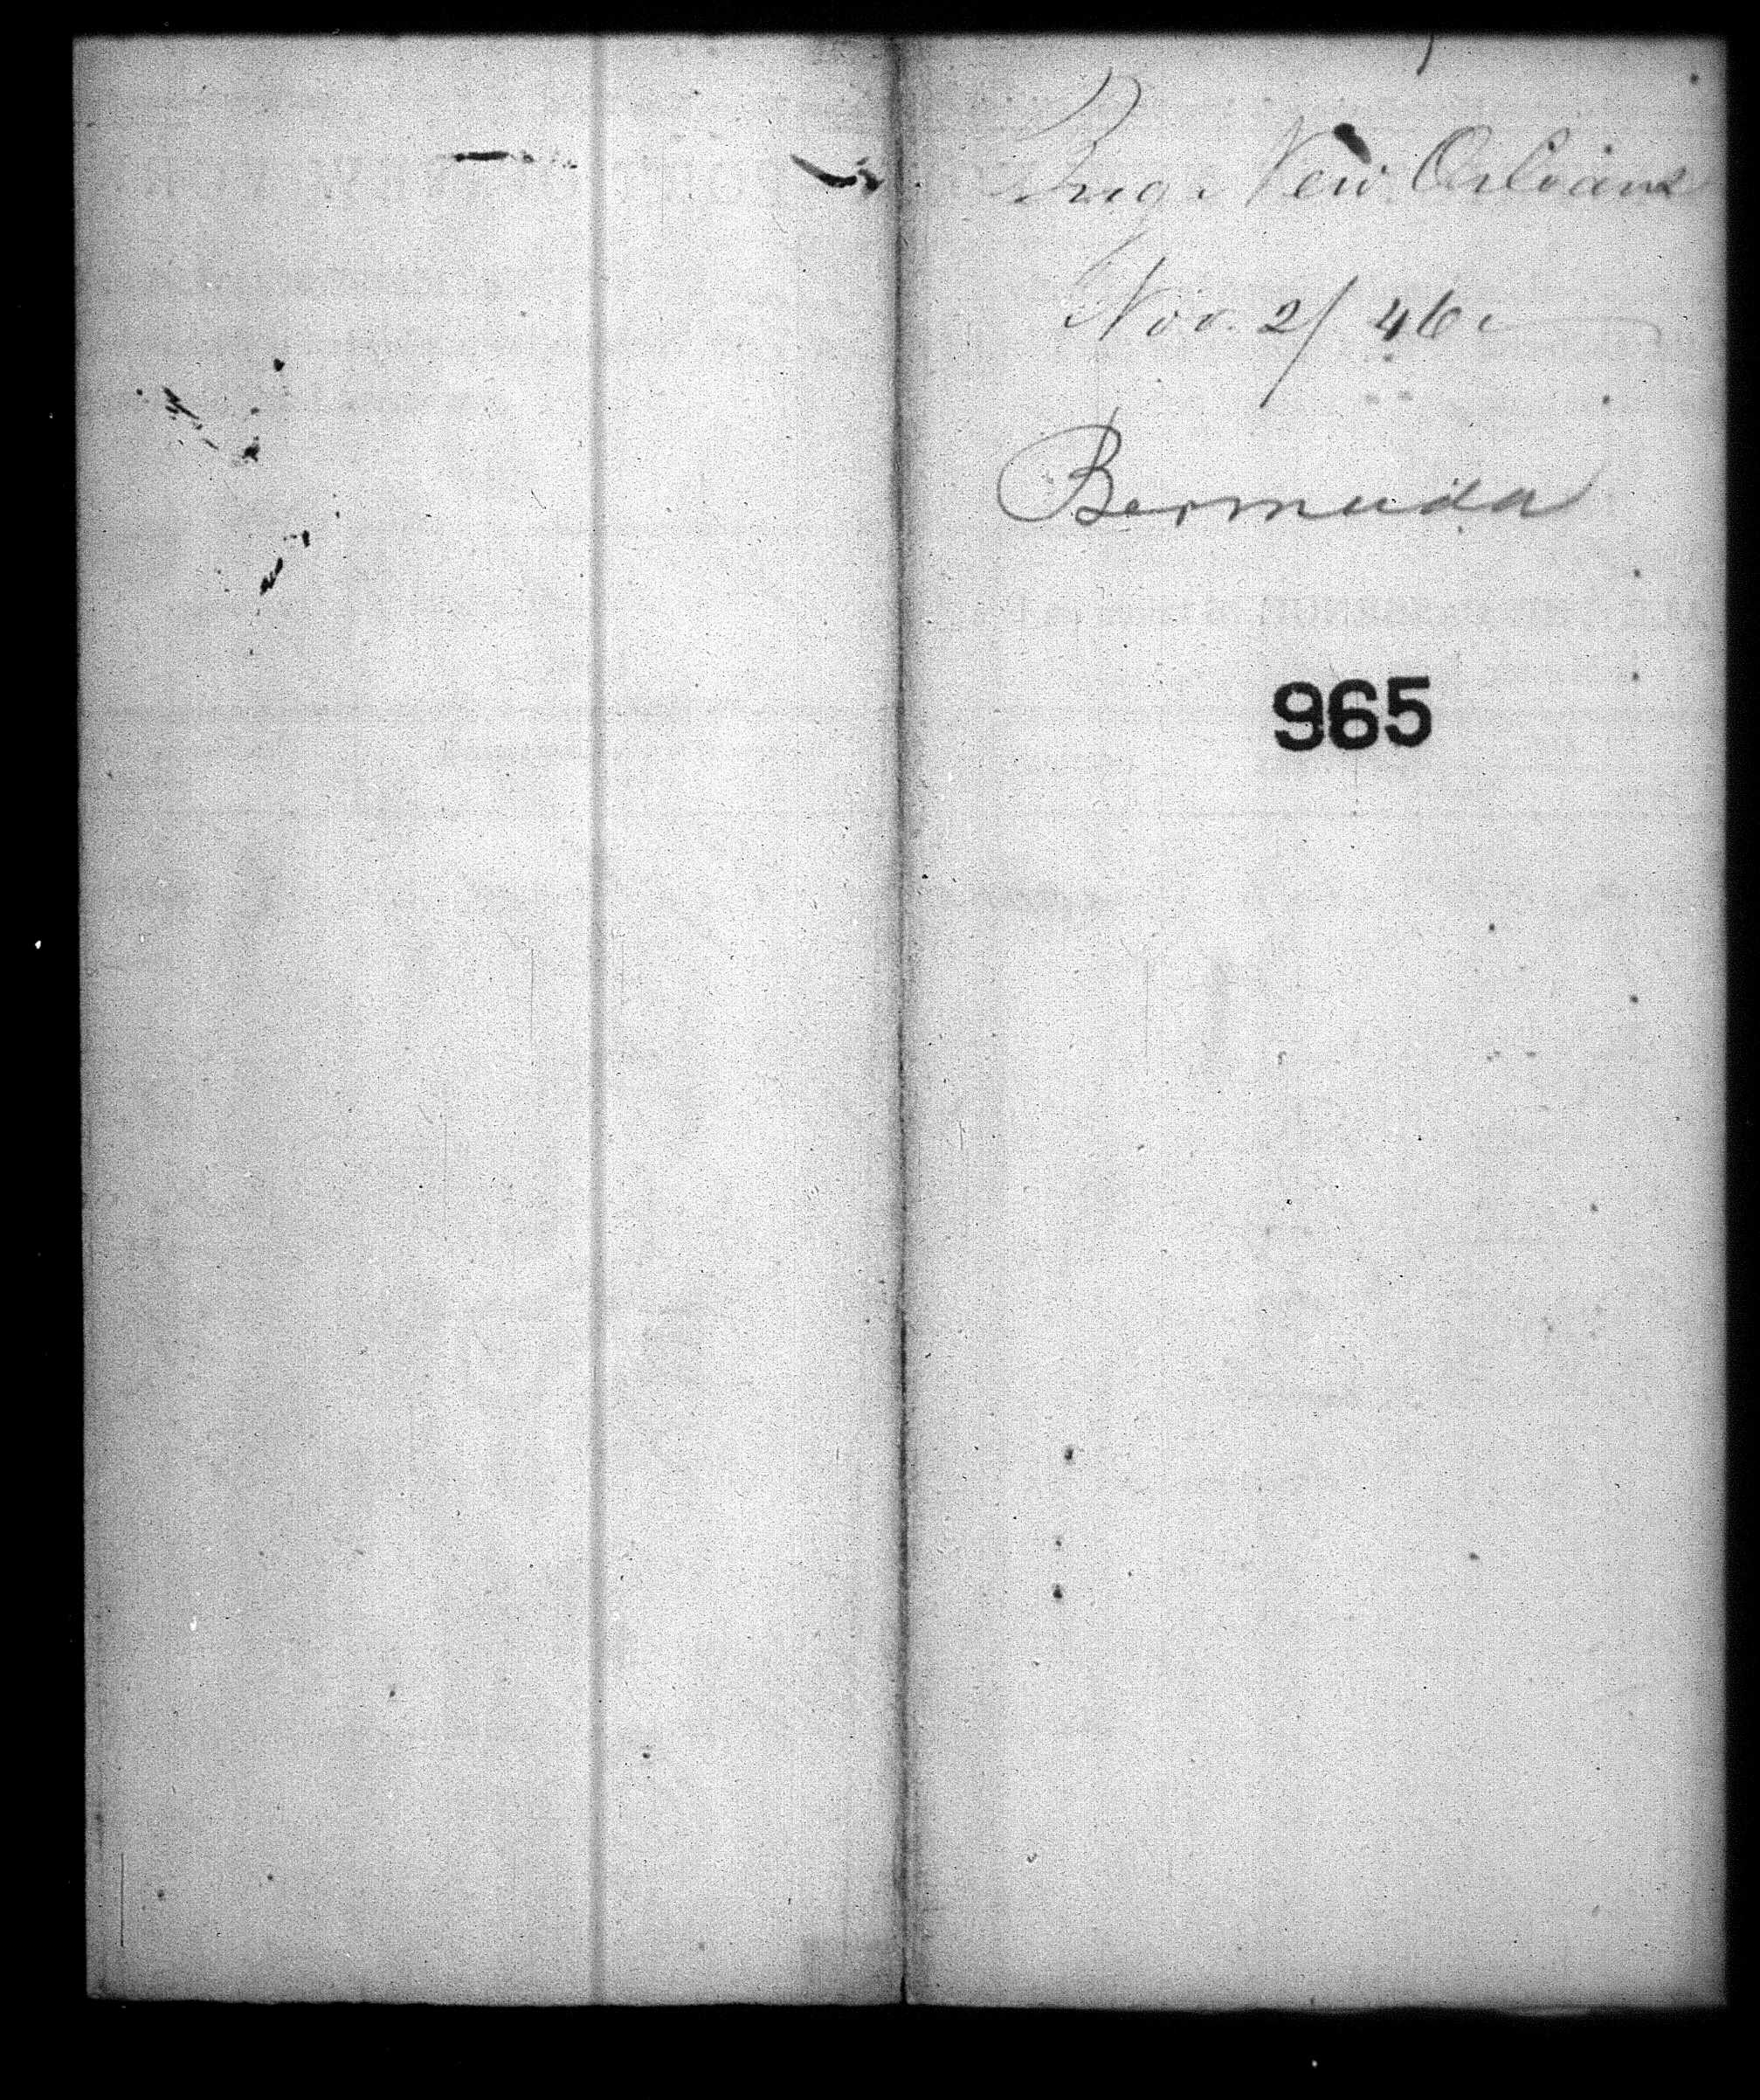 Brig New Orleans
Nov. 2/46
Bermuda
965